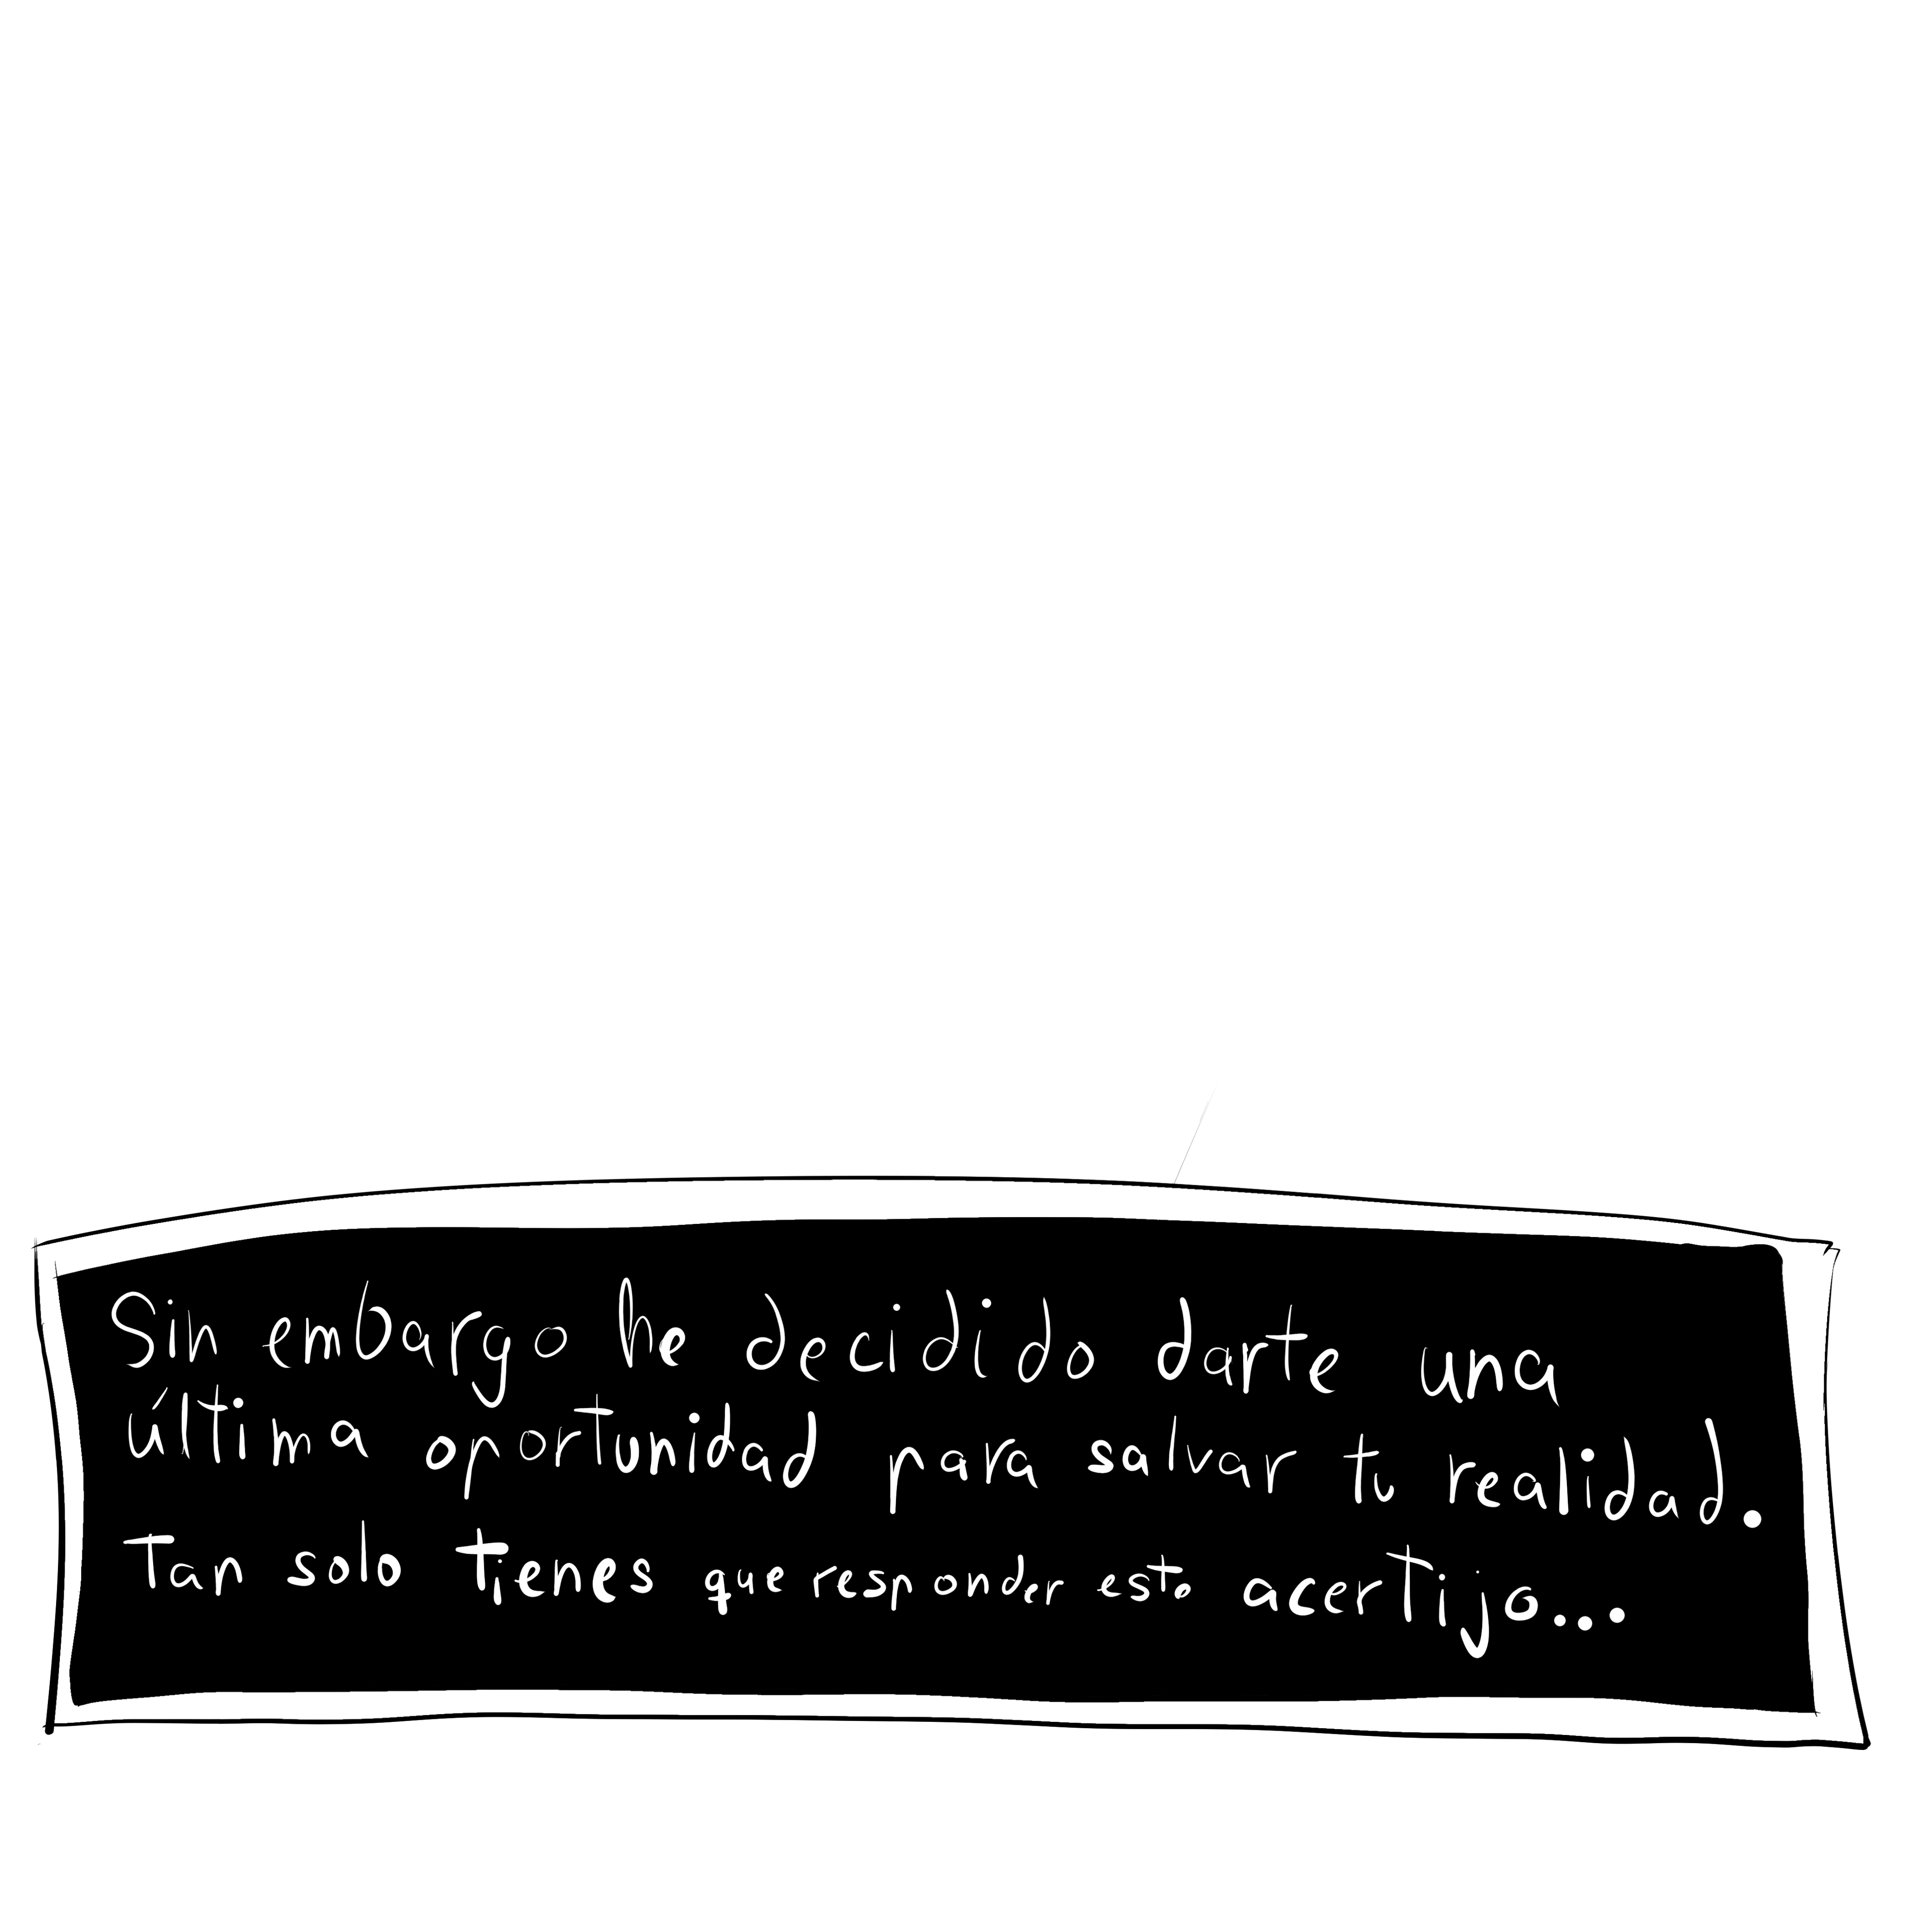 Sin enbargo he decidido darte una
última oportunidad para salvar tu realidad.
Tan solo tienes que responder este acertijo...